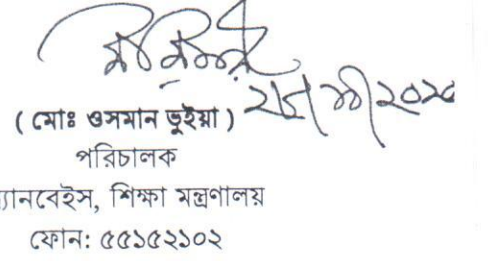 ( মোঃ ওসমান ভুইয়া )
পরিচালক
ব্যানবেইস, শিক্ষা মন্ত্রণালয়
ফোন: ৫৫১৫২১০২